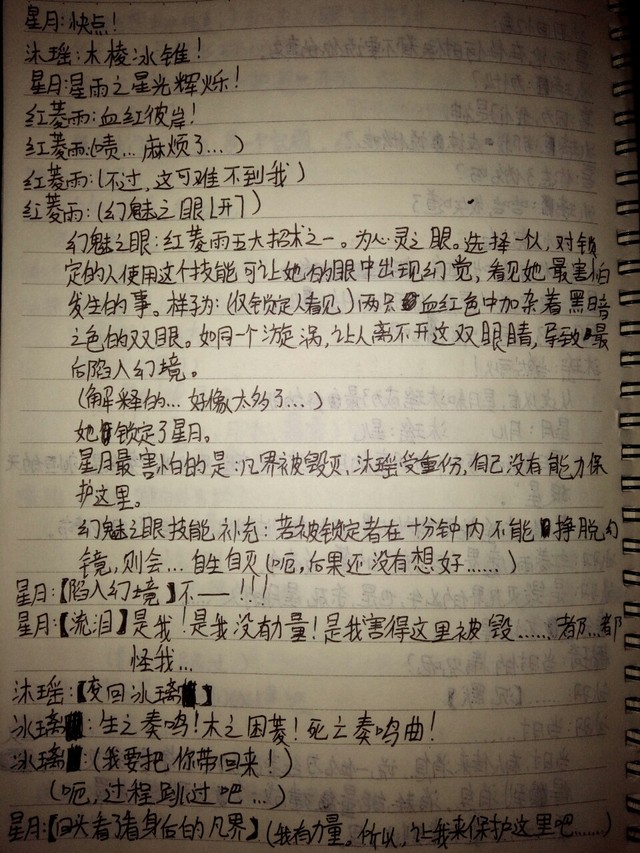 星月:快点!
沐瑶:木棱冰锥!
星月:星雨之星光辉烁!
红菱雨:血红彼岸!
红菱雨:(啧...麻烦了...)
红菱雨:(不过,这可难不到我)
红菱雨:(幻魅之眼[开])
幻魅之眼:红菱雨五大招术之一。为心灵之眼。选择一人,对锁
定的人使用这个技能可让她的眼中出现幻觉,看见她最害怕
发生的事。样子为:(仅锁定人看见)两只血红色中加杂着黑暗
之色的双眼。如同一个漩涡,让人离不开这双眼睛,导致最
后陷入幻境。
(解释的...好像太多了...)
她锁定了星月。
星月最害怕的是:凡界被毁灭、沐瑶受重伤,自己没有能力保
护这里。
幻魅之眼技能补充:若被锁定者在十分钟内不能挣脱幻
镜,则会...自生自灭(呃,后果还没有想好......)
星月:【陷入幻境】不——!!!
星月:【流泪】是我!是我没有力量!是我害得这里被毁......都...都
怪我...
沐瑶:【变回冰璃】
冰璃:生之奏鸣!木之困菱!死亡奏鸣曲!
冰璃:(我要把你带回来!)
(呃,过程跳过吧...)
星月:【回头看了看身后的凡界】(我有力量。所以,让我来保护这里吧......)